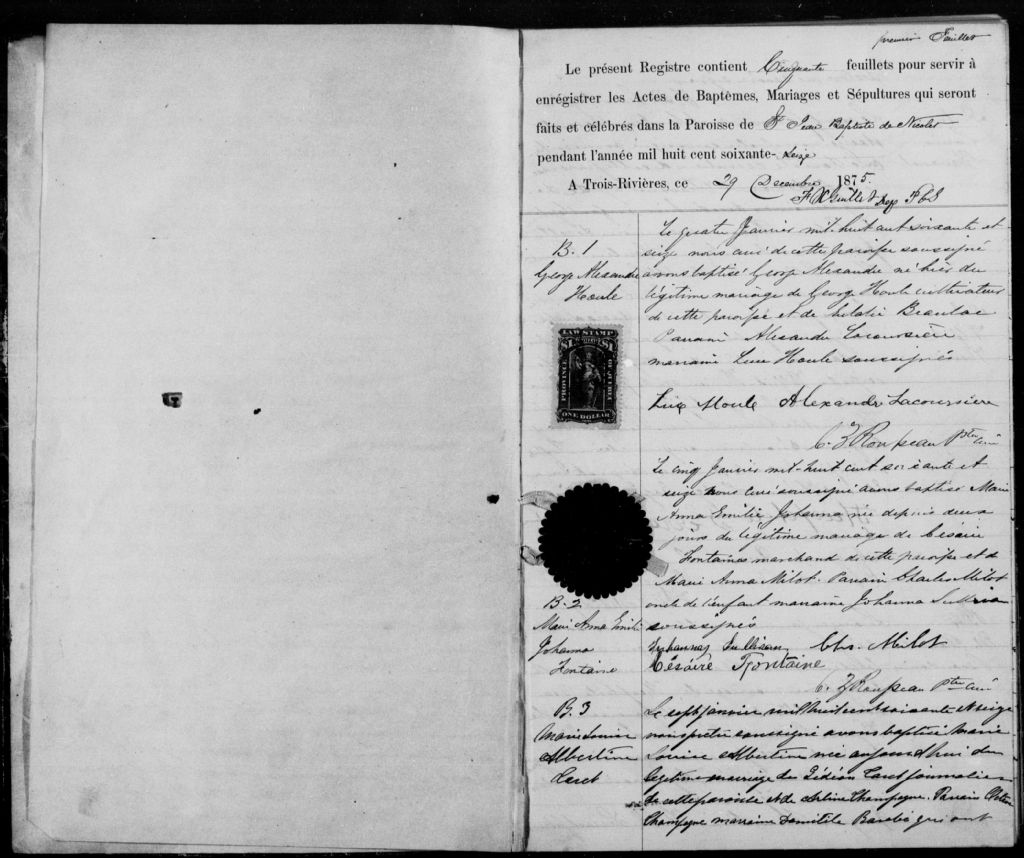 premier Feuillet
Le présent Registre contient Cinquante feuillets pour servir à
enrégistrer les Actes de Baptèmes, Mariages et Sépultures qui seront
faits et célébrés dans la Paroisse de St Jean Baptiste de Nicolet
pendant l'année mil huit cent soixante- seize
A Trois-Rivières, ce 29 Decembre 1875.
F X Guillet Dep P C S
B. 1
George Alexandre
Houle
LAW STAMP
$1 $1
PROVINCE OF QUEBEC
ONE DOLLAR
Le quatre Janvier mil huit cent soixante et
seize nous curé de cette paroisse soussigné
avons baptisé George Alexandre né hier du
légitime mariage de George Houle cultivateur
de cette paroisse et de Beaulac
Parrain Alexandre Lacoursière
marraine Luce Houle soussignés
Luce Houle Alexandre Lacoursière
C. Z Rousseau Ptre curé
B. 2
Marie Anna Emili
Johanna
Fontaine
Le cinq Janvier mil-huit cent soixante et
seize nous curé soussigné avons baptisé Marie
Anna Emilie Johanna née depuis deux
jours du légitime mariage de Césaire
Fontaine marchand de cette paroisse et de
Marie Anna Milot. Parrain Charles Milot
oncle de l'enfant marraine Johanna
soussignés
Johannah Sullivan Chs. Milot
Césaire Fontaine
C. Z Rousseau Ptre curé
B. 3
Marie Louise
Albertine
Caret
Le sept janvier mil huit cent soixante et seize
nous prêtre soussigné avons baptisé Marie
Louise Albertine née aujourd'hui du
légitime mariage de Gédéon Caret journalier
de cette paroisse et de Champagne. Parrain
Champagne marraine Domitile qui ont